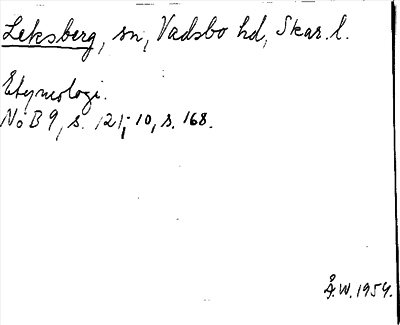 Leksberg, sn, Vadsbo hd, Skar. l.
Etymologi.
NoB 9, s. 121; 10, s. 168.
Å.W. 1954.